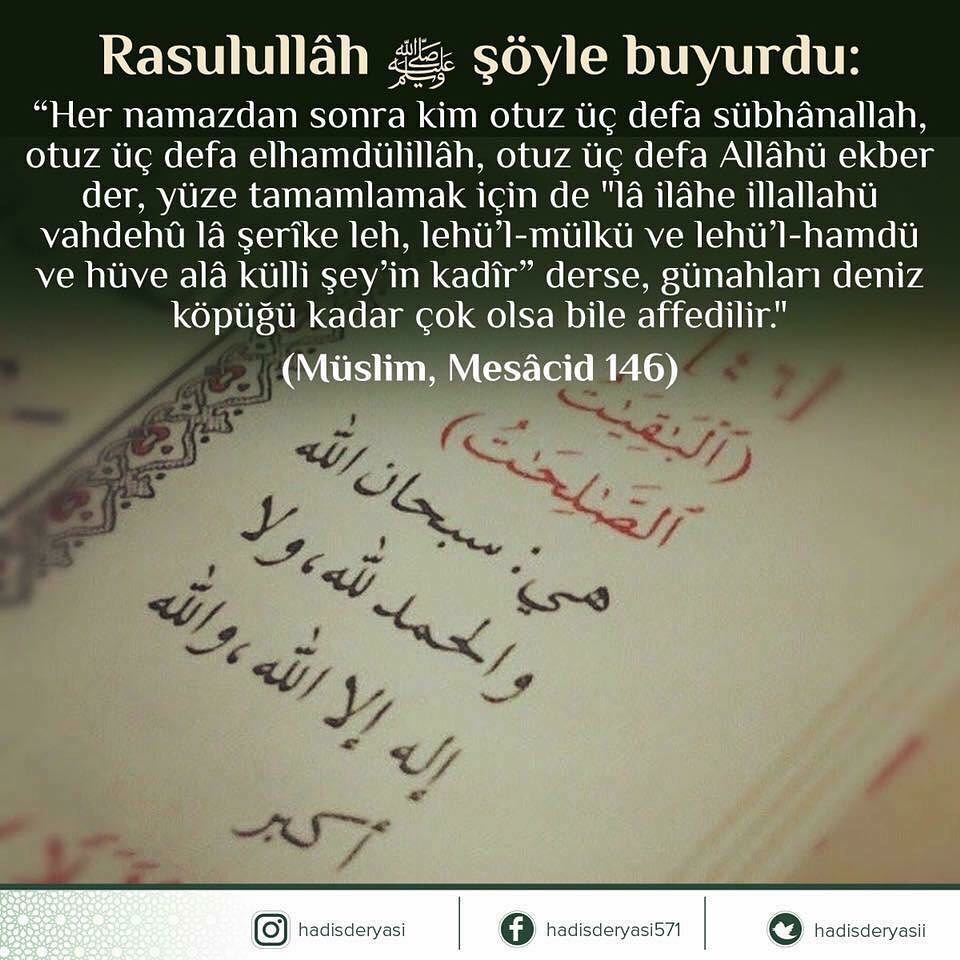 Rasulullâh ﷺ şöyle buyurdu:
“Her namazdan sonra kim otuz üç defa sübhânallah,
otuz üç defa elhamdülillâh, otuz üç defa Allâhü ekber
der, yüze tamamlamak için de "lâ ilâhe illallahü
vahdehû lâ şerîke leh, lehü’l-mülkü ve lehü’l-hamdü
ve hüve alâ külli şey’in kadîr” derse, günahları deniz
köpüğü kadar çok olsa bile affedilir."
(Müslim, Mesâcid 146)
(ٱلْبَـٰقِيَـٰتُ
ٱلصَّـٰلِحَـٰتُ)
هي: سبحان الله
والحمد لله، ولا
إله إلا الله، والله
أكبر
hadisderyasi
hadisderyasi571
hadisderyasii